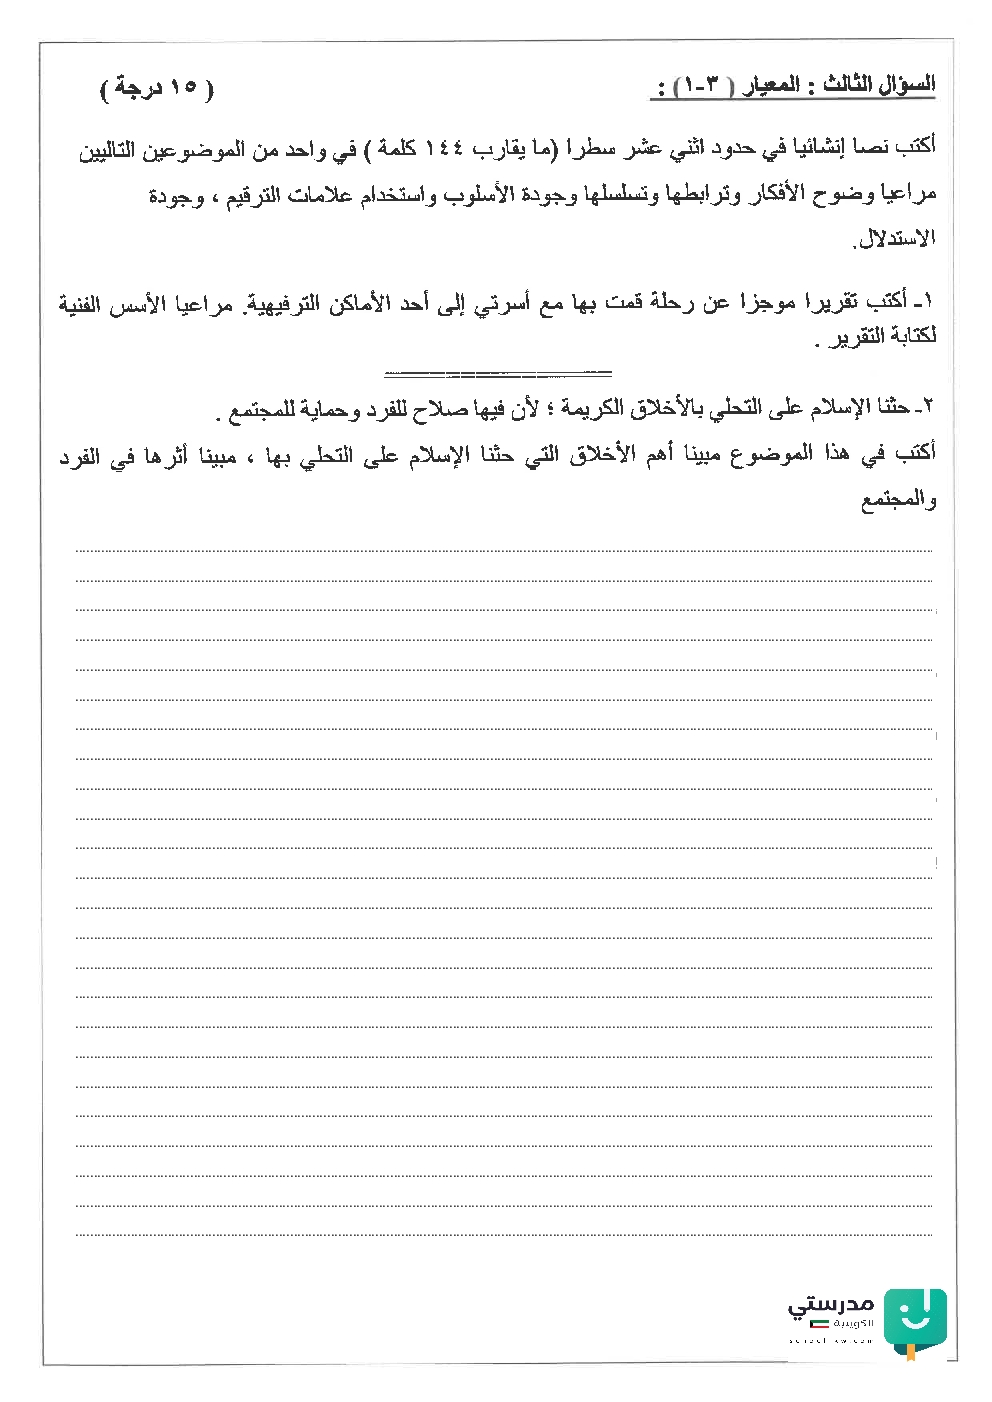 السؤال الثالث : المعيار ( ٣-١) :
( ١٥ درجة )
أكتب نصا إنشائيا في حدود اثني عشر سطرا (ما يقارب ١٤٤ كلمة ) في واحد من الموضوعين التاليين
مراعيا وضوح الأفكار وترابطها وتسلسلها وجودة الأسلوب واستخدام علامات الترقيم ، وجودة
الاستدلال.
١- أكتب تقريرا موجزا عن رحلة قمت بها مع أسرتي إلى أحد الأماكن الترفيهية. مراعيا الأسس الفنية
لكتابة التقرير .
٢- حثنا الإسلام على التحلي بالأخلاق الكريمة ؛ لأن فيها صلاح للفرد وحماية للمجتمع .
أكتب في هذا الموضوع مبينا أهم الأخلاق التي حثنا الإسلام على التحلي بها ، مبينا أثرها في الفرد
والمجتمع
مدرستي
الكويتية
school-kw.com